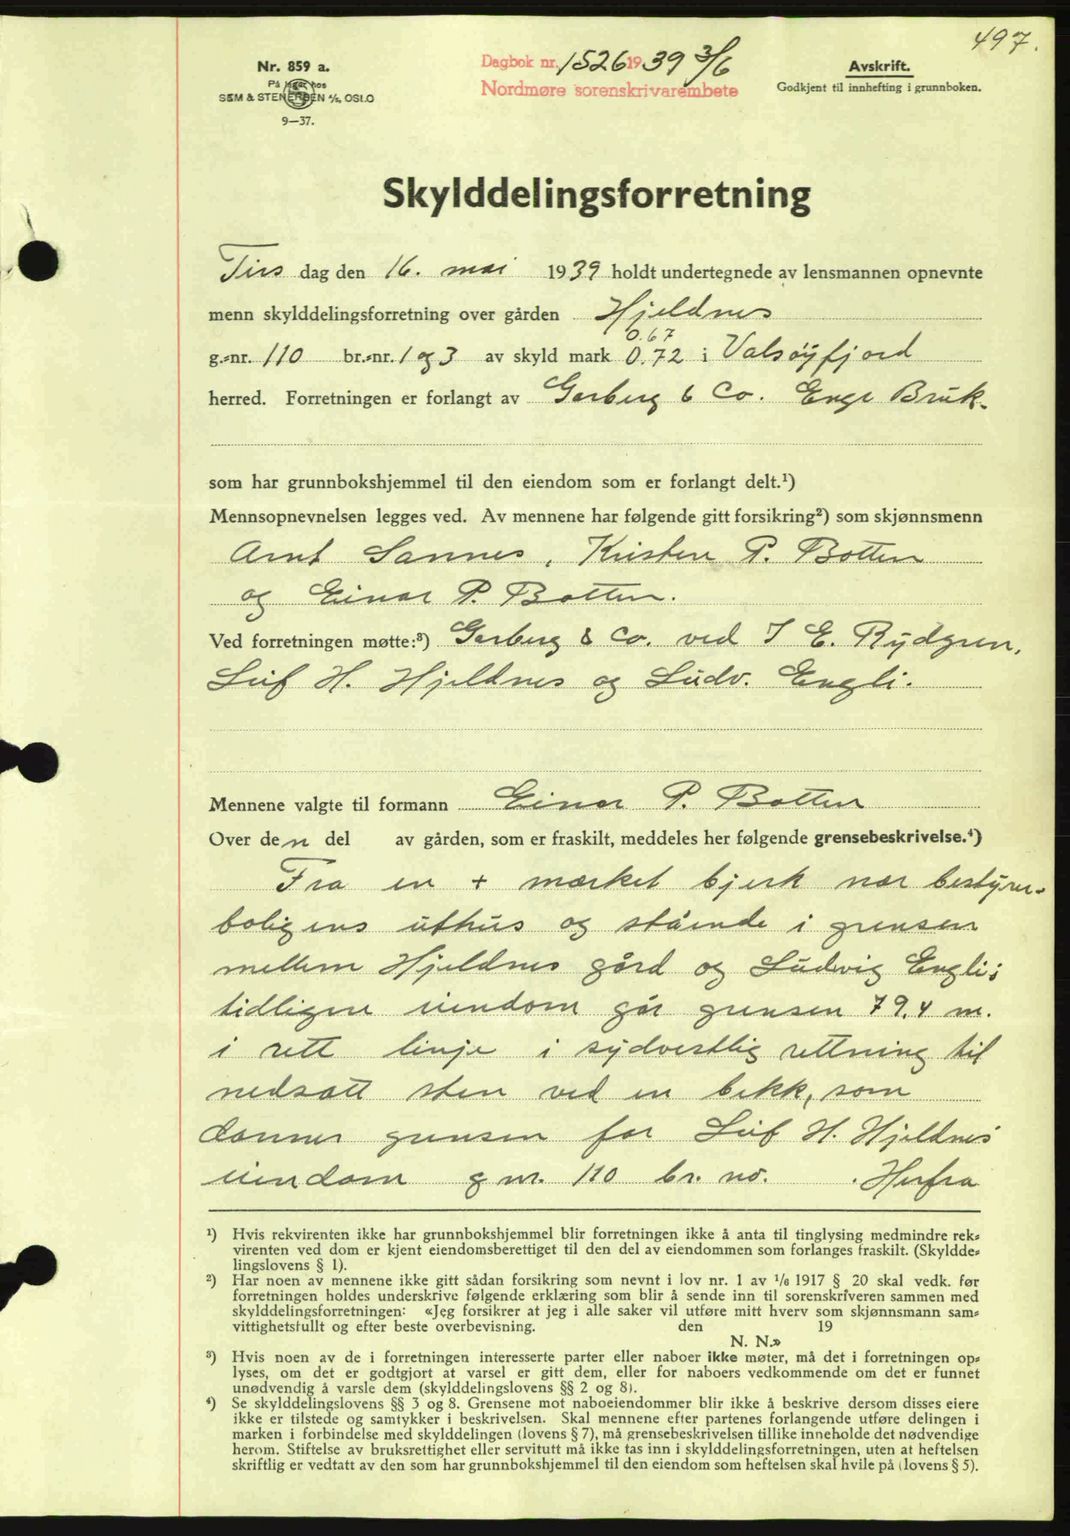 497.
Nr. 859 a.
På lager hos
SEM & STENERSEN A/S, OSLO
9—37.
Dagbok nr. 1526 1939 3/6
Nordmøre sorenskrivarembete
Avskrift.
Godkjent til innhefting i grunnboken.
Skylddelingsforretning
Tirsdag den 16. mai 1939 holdt undertegnede av lensmannen opnevnte
menn skylddelingsforretning over gården Hjeldnes
0.67
g.-nr. 110 br.-nr. 1 og 3 av skyld mark 0.72 i Valsøyfjord
herred. Forretningen er forlangt av Garberg & Co. Enge Bruk.
som har grunnbokshjemmel til den eiendom som er forlangt delt.¹)
Mennsopnevnelsen legges ved. Av mennene har følgende gitt forsikring²) som skjønnsmenn
Arnt Sannes, Kristen P. Botten
og Einar P. Botten.
Ved forretningen møtte:³) Garberg & Co. ved I E. Rydgren,
Leif H. Hjeldnes og Ludv. Engli.
Mennene valgte til formann Einar P. Botten
Over den del av gården, som er fraskilt, meddeles her følgende grensebeskrivelse.⁴)
Fra en + mærket bjerk nær bestyrer-
boligens uthus og stående i grensen
mellem Hjeldnes gård og Ludvig Engli's
tidligere eiendom går grensen 79.4 m.
i rett linje i sydvestlig rettning til
nedsatt sten ved en bekk, som
danner grensen for Leif H. Hjeldnes'
eiendom g nr. 110 br. no. . Herfra
¹) Hvis rekvirenten ikke har grunnbokshjemmel blir forretningen ikke å anta til tinglysing medmindre rek-
virenten ved dom er kjent eiendomsberettiget til den del av eiendommen som forlanges fraskilt. (Skyldde-
lingslovens § 1).
²) Har noen av mennene ikke gitt sådan forsikring som nevnt i lov nr. 1 av 1/6 1917 § 20 skal vedk. før
forretningen holdes underskrive følgende erklæring som blir å sende inn til sorenskriveren sammen med
skylddelingsforretningen: «Jeg forsikrer at jeg i alle saker vil utføre mitt hverv som skjønnsmann sam-
vittighetsfullt og efter beste overbevisning. den 19
N. N.»
³) Hvis noen av de i forretningen interesserte parter eller naboer ikke møter, må det i forretningen op-
lyses, om det er godtgjort at varsel er gitt dem, eller for naboers vedkommende om det er funnet
unødvendig å varsle dem (skylddelingslovens §§ 2 og 8).
⁴) Se skylddelingslovens §§ 3 og 8. Grensene mot naboeiendommer blir ikke å beskrive dersom disses eiere
ikke er tilstede og samtykker i beskrivelsen. Skal mennene efter partenes forlangende utføre delingen i
marken i forbindelse med skylddelingen (lovens § 7), må grensebeskrivelsen tillike inneholde det nødvendige
herom. Stiftelse av bruksrettighet eller servitutt må ikke tas inn i skylddelingsforretningen, uten at heftelsen
skriftlig er vedtatt av den som har grunnbokshjemmel til den eiendom som heftelsen skal hvile på (lovens § 5).